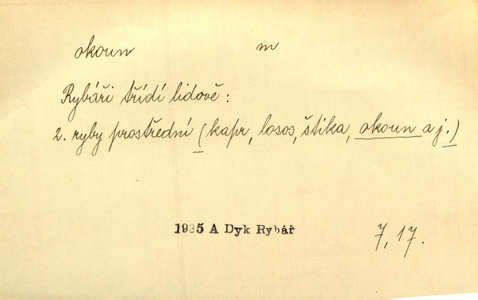 okoun m
Rybáři třídí lidově:
2. ryby prostřední (kapr, losos, štika, okoun a j.)
1935 A Dyk Rybář 7, 17.